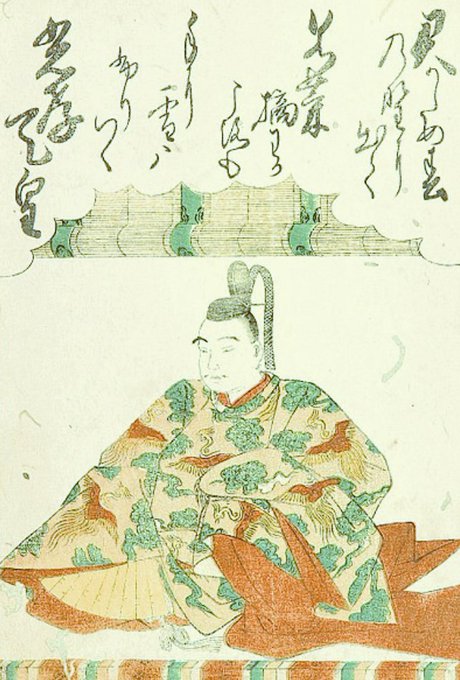 君かため春
乃野に出て
若菜
摘わか
ころも
手に
雪ハ
ふり
つゝ
光孝
天皇